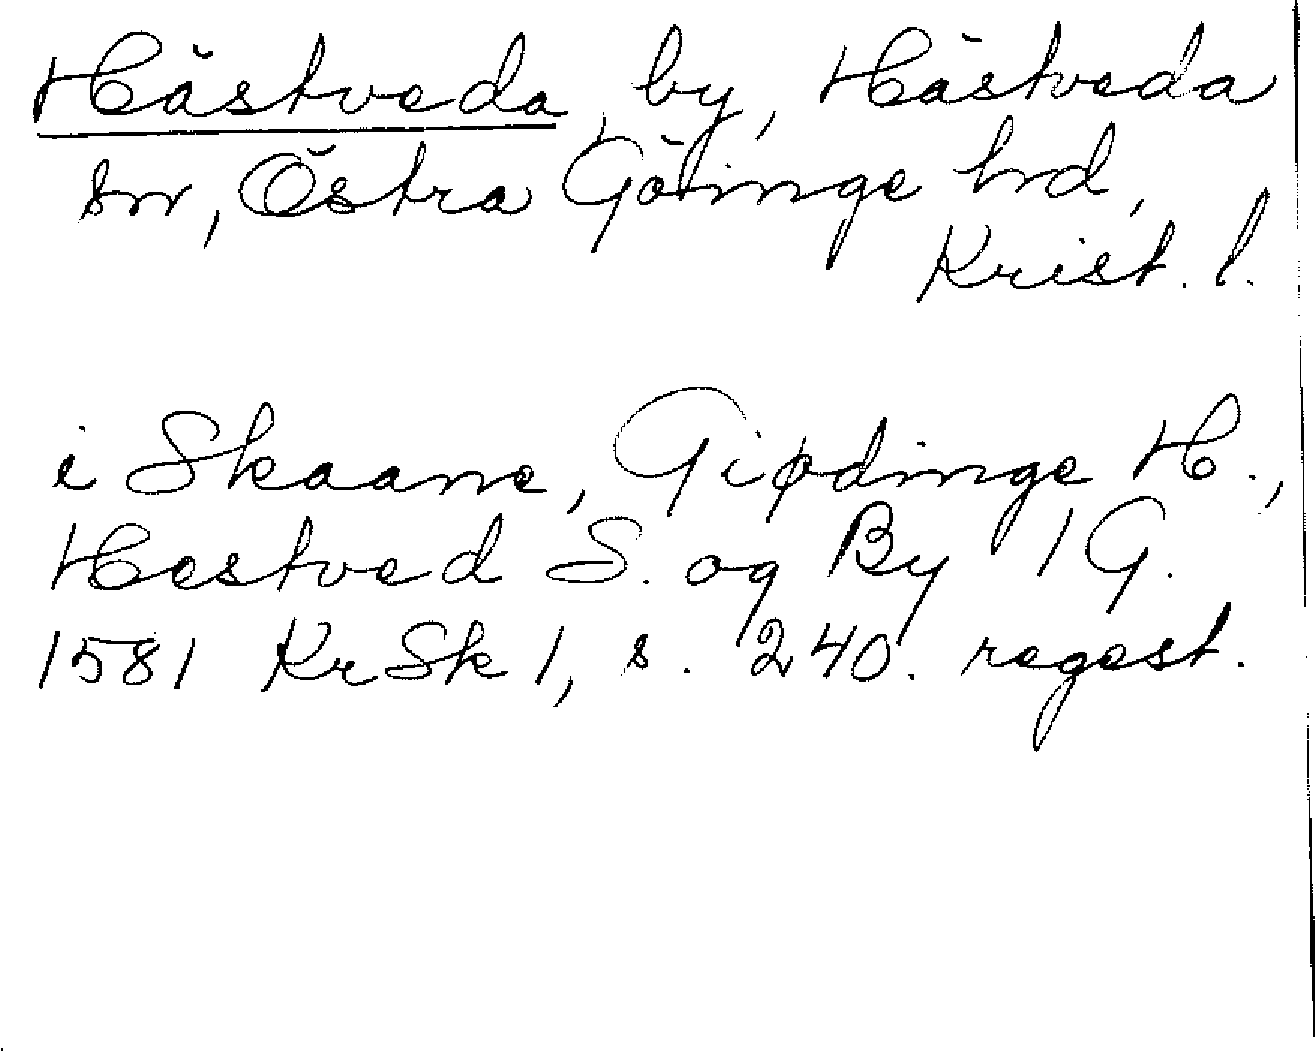 Hästveda, by, Hästveda
sn, Östra Göinge hrd,
Krist. l.
i Skaane, Giødinge H.,
Hestved S. og By 1 G.
1581 KrSk 1, s. 240. regest.